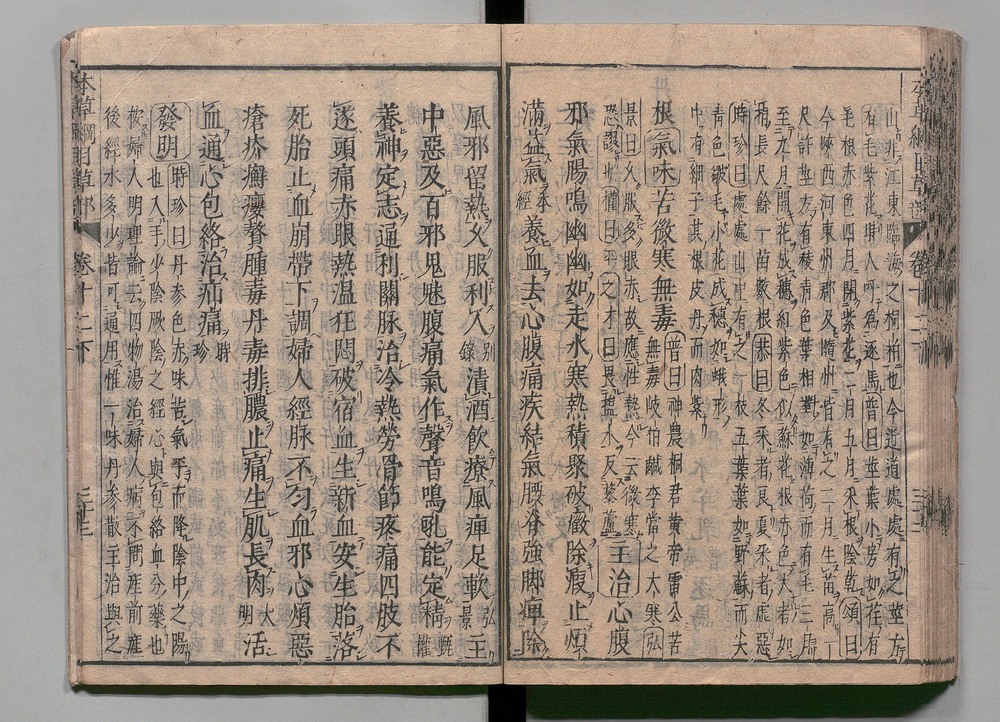 本草綱目草部 卷十二下
山非江東臨海之桐柏也今近道處處有之莖方
有毛紫花時人呼為逐馬普曰莖葉小房如荏有
毛根赤色四月開紫花二月五月采根陰乾頌曰
今陝西河東州郡及隨州皆有之二月生苗高一
尺許莖方有稜青色葉相對如薄荷而有毛三月
至九月開花成穗紅紫色似蘇花根赤色大者如
指長尺餘一苗數根恭曰冬采者良夏采者虛惡
時珍曰處處山中有之一枝五葉葉如野蘇而尖
青色皺毛小花成穗如蛾形
中有細子其根皮丹而肉紫
根氣味苦微寒無毒
普曰神農桐君黃帝雷公苦
無毒岐伯鹹李當之大寒弘
景曰久服多眼赤故應性熱今云微寒
恐謬也權曰平之才曰畏鹽水反藜蘆
主治心腹
邪氣腸鳴幽幽如走水寒熱積聚破癥除瘕止煩
滿益氣本經養血去心腹痛疾結氣腰脊強脚痺除
風邪留熱久服利人別錄漬酒飲療風痺足軟弘景主
中惡及百邪鬼魅腹痛氣作聲音鳴吼能定精甄權
養神定志通利關脉治冷熱勞骨節疼痛四肢不
遂頭痛赤眼熱溫狂悶破宿血生新血安生胎落
死胎止血崩帶下調婦人經脉不勻血邪心煩惡
瘡疥癬癭贅腫毒丹毒排膿止痛生肌長肉大明活
血通心包絡治疝痛時珍
發明時珍曰丹參色赤味苦氣平而降陰中之陽
也入手少陰厥陰之經心與包絡血分藥也
按婦人明理論云四物湯治婦人病不問產前產
後經水多少皆可通用惟一味丹參散主治與之
本草綱目草部 卷十二下